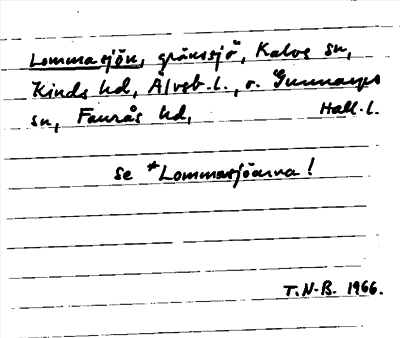 Lommasjön, gränssjö, Kalvs sn,
Kinds hd, Älvsb. l., o. Gunnarps
sn, Faurås hd, Hall. l.
Se *Lommasjöarna!
T. N-B. 1966.